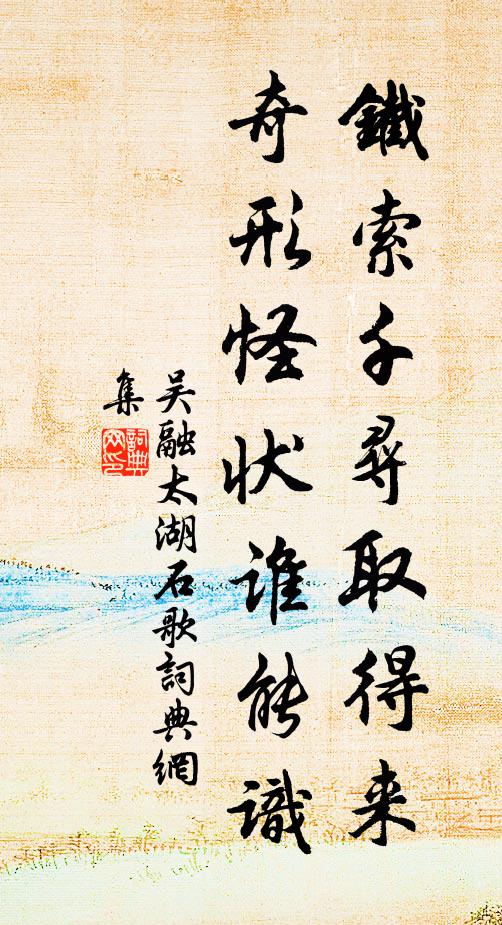 鐵索千尋取得来
奇形怪状誰能識
吴融太湖石歌詞典網
集
詞典
网印